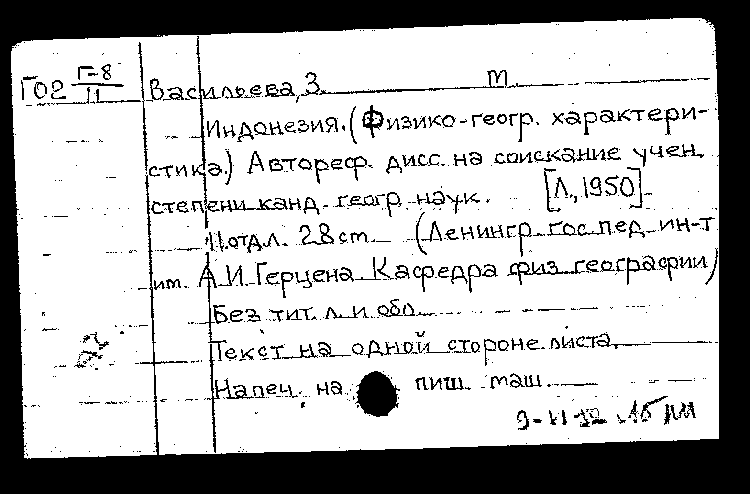 Г02 Г-8/11 Васильева, З. т.
Индонезия. (Физико-геогр. характери-
стика.) Автореф. дисс. на соискание учен.
степени канд. геогр. наук. [Л., 1950]
11 отд. л. 28 cm (Ленингр. гос. пед. ин-т
им. А.И. Герцена. Кафедра физ. географии)
Без тит. л. и обл.
Текст на одной стороне листа.
Напеч. на пиш. маш.